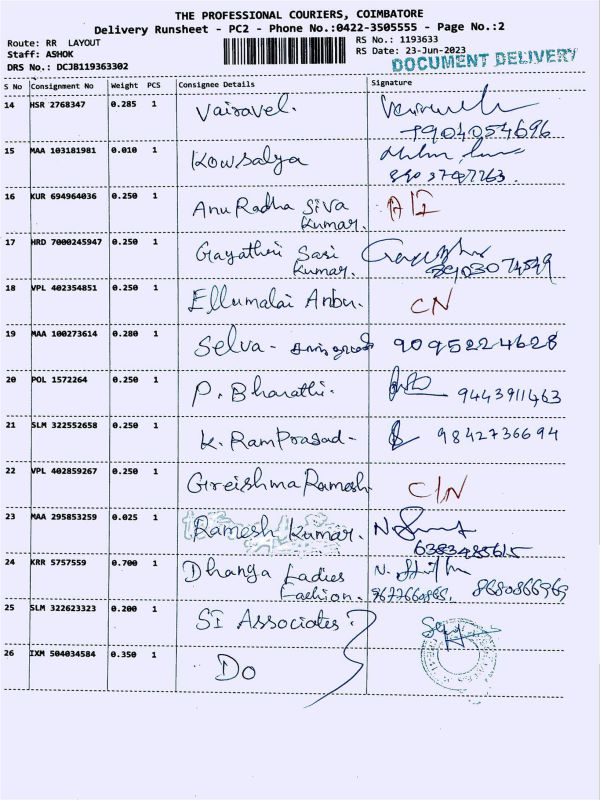 THE PROFESSIONAL COURIERS, COIMBATORE
Delivery Runsheet - PC2 - Phone No.:0422-3505555 - Page No.:2
Route: RR LAYOUT RS No.: 1193633
Staff: ASHOK RS Date: 23-Jun-2023
DRS No.: DCJB119363302 DOCUMENT DELIVERY
S No Consignment No Weight PCS Consignee Details Signature
14 HSR 2768347 0.285 1 Vairavel.
7904054696
15 MAA 103181981 0.010 1 Kowsalya
16 KUR 694964036 0.250 1 AnuRadha Siva
Kumar.
17 HRD 7000245947 0.250 1 Gayathri Sasi
Kumar.
18 VPL 402354851 0.250 1 Ellumalai Anbu. CN
19 MAA 100273614 0.280 1 Selva - 9095224628
20 POL 1572264 0.250 1 P. Bharathi. 9443911463
21 SLM 322552658 0.250 1 K. RamPrasad - 9842736694
22 VPL 402859267 0.250 1 Greishma Ramesh C/N
23 MAA 295853259 0.025 1 Ramesh Kumar.
6383485615
24 KRR 5757559 0.700 1 Dhanya Ladies
Fashion. 8680866969
25 SLM 322623323 0.200 1 SI Associates.
26 IXM 504034584 0.350 1 Do